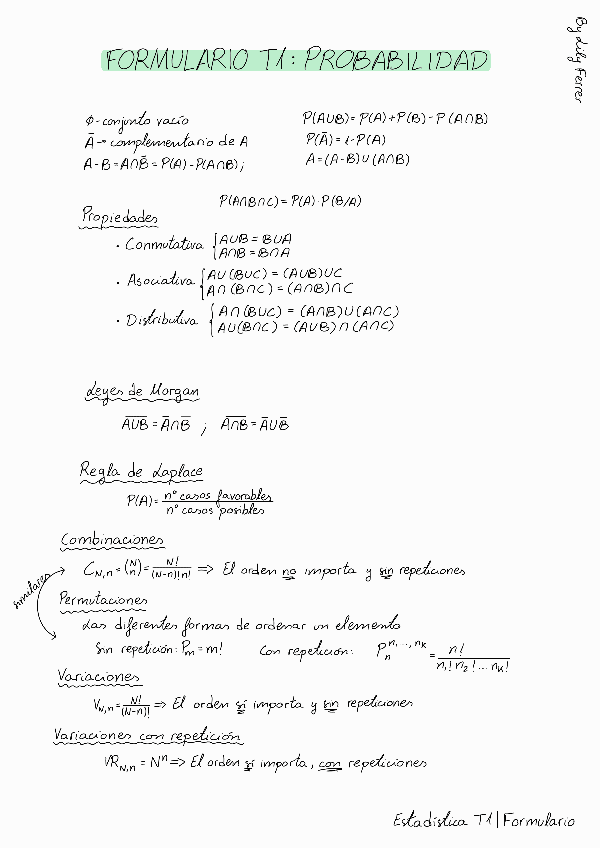 By Lily Ferrer
FORMULARIO T1: PROBABILIDAD
ϕ - conjunto vacío
Ā → complementario de A
A-B = A∩B̄ = P(A) - P(A∩B);
P(A∪B) = P(A) + P(B) - P(A∩B)
P(Ā) = 1 - P(A)
A = (A-B)∪(A∩B)
P(A∩B∩C) = P(A)·P(B/A)
Propiedades
· Conmutativa { A∪B = B∪A
A∩B = B∩A
· Asociativa { A∪(B∪C) = (A∪B)∪C
A∩(B∩C) = (A∩B)∩C
· Distributiva { A∩(B∪C) = (A∩B)∪(A∩C)
A∪(B∩C) = (A∪B)∩(A∩C)
Leyes de Morgan
\overline{A∪B} = Ā∩B̄ ; \overline{A∩B} = Ā∪B̄
Regla de Laplace
P(A) = nº casos favorables / nº casos posibles
Combinaciones
C_{N,n} = (N n) = N! / (N-n)! n! ⇒ El orden no importa y sin repeticiones
similares
Permutaciones
Las diferentes formas de ordenar un elemento
Sin repetición: P_m = m! Con repetición: P_n^{n,...,n_k} = n! / n_1! n_2! ... n_k!
Variaciones
V_{N,n} = N! / (N-n)! ⇒ El orden sí importa y sin repeticiones
Variaciones con repetición
VR_{N,n} = N^n ⇒ El orden sí importa, con repeticiones
Estadística T1 | Formulario